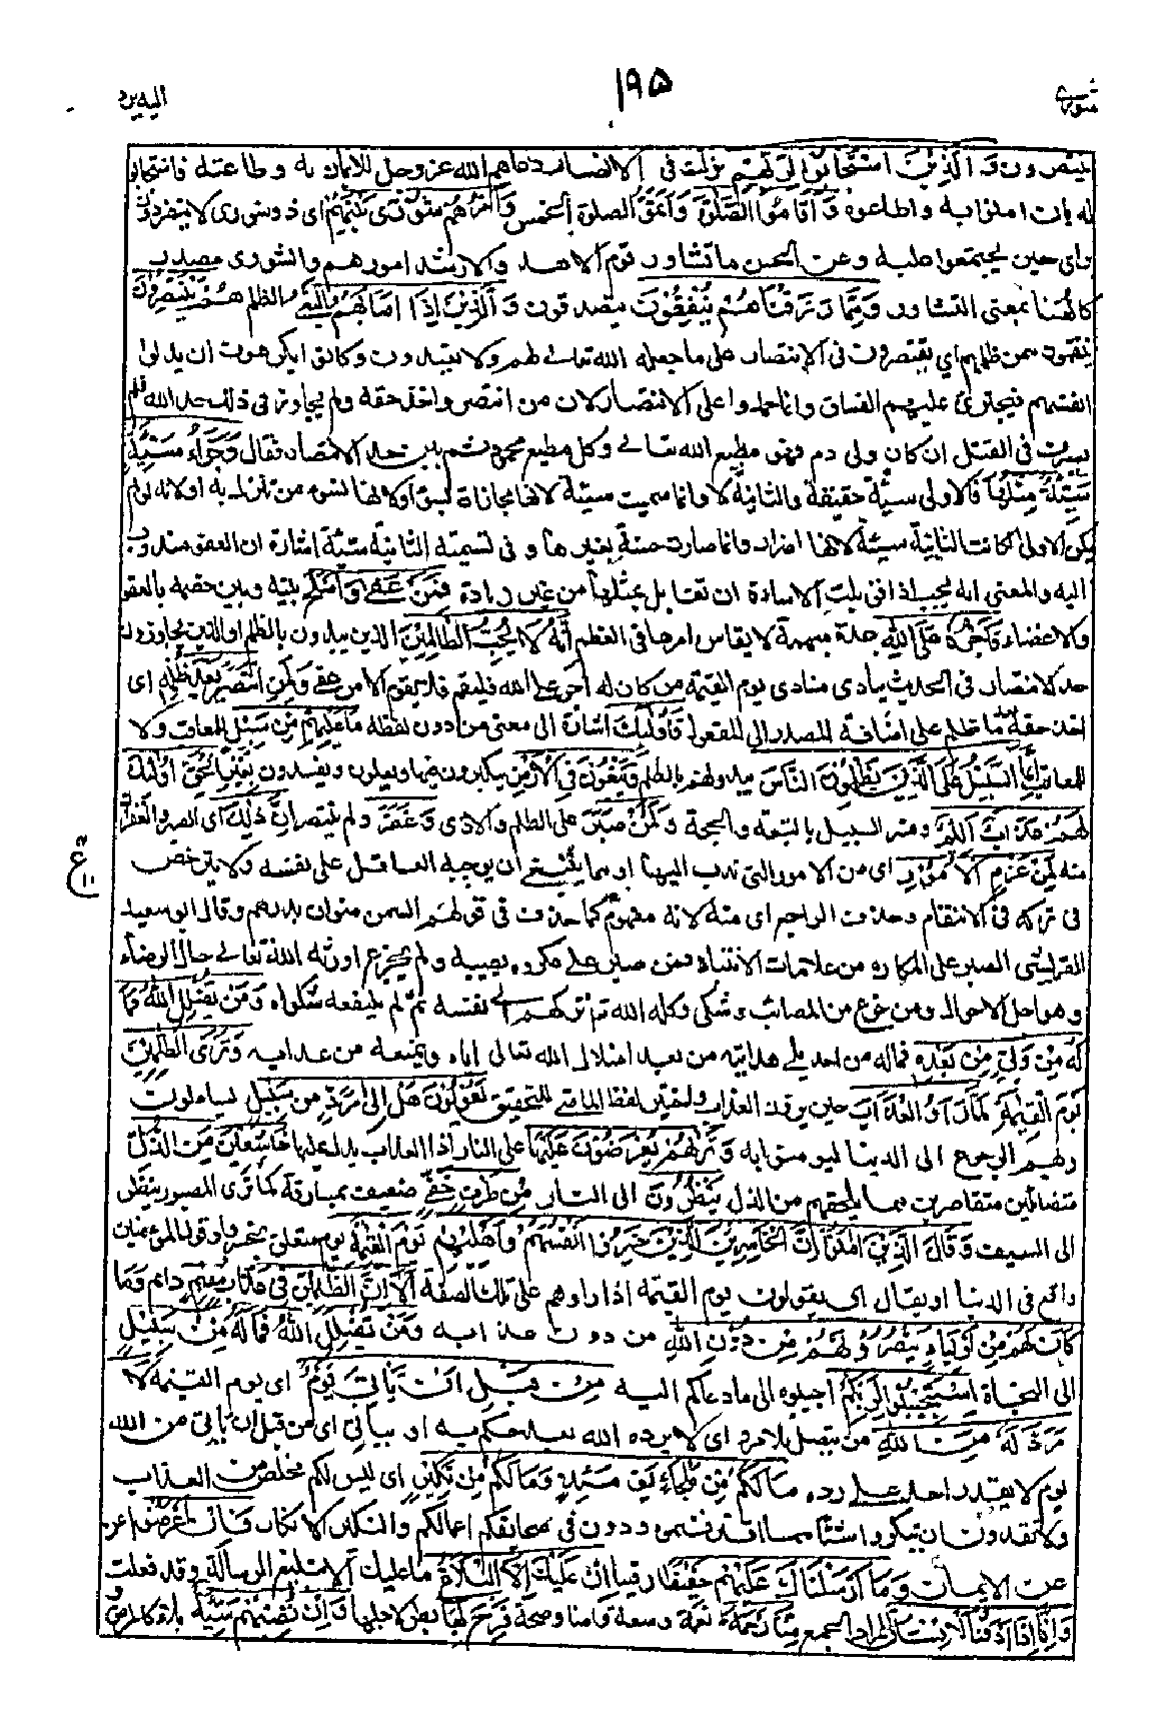 شورى
١٩٥
اليه يرد
ينتصرون وَ الَّذِيْنَ اسْتَجَابُوْا لِرَبِّهِمْ نزلت في الانصار دعاهم الله عز وجل للايمان به وطاعته فاستجابوا
له بان امنوا به واطاعوه وَ اَقَامُوا الصَّلٰوةَ واتموا الصلوة الخمس وَ اَمْرُهُمْ شُوْرٰى بَيْنَهُمْ اى ذو شورى لا ينفردون
براى حين يجتمعوا عليه وعن الحسن ما تشاور قوم الا هدوا لارشد امورهم والشورى مصدر
كالفتيا بمعنى التشاور وَمِمَّا رَزَقْنَاهُمْ يُنْفِقُوْنَ يتصدقون وَ الَّذِيْنَ اِذَا اَصَابَهُمُ الْبَغْيُ الظلم هُمْ يَنْتَصِرُوْنَ
ينتقمون ممن ظلمهم اي يقتصرون في الانتصار على ما جعله الله تعالى لهم ولا يعتدون وكانوا يكرهون ان يذلوا
انفسهم فيجترئ عليهم الفساق وانما حمدوا على الانتصار لان من انتصر واخذ حقه ولم يجاوز في ذلك حد الله فلم
يسرف في القتل ان كان ولى دم فهو مطيع الله تعالى وكل مطيع محمود ثم بين حد الانتصار فقال وَجَزَاءُ سَيِّئَةٍ
سَيِّئَةٌ مِّثْلُهَا فالاولى سيئة حقيقة والثانية لا وانما سميت سيئة لانها مجازاة لسوء او لانها تسوء من تنزل به او لانه لو لم
يكن الاولى لكانت الثانية سيئة لانها اضرار وانما صارت حسنة لغيرها و في تسميته الثانية سيئة اشارة ان العفو مندوب
اليه والمعنى انه يجب اذا قوبلت الاساءة ان تقابل بمثلها من غير زيادة فَمَنْ عَفٰى وَ اَصْلَحَ بينه وبين خصمه بالعفو
والاغضاء فَاَجْرُهٗ عَلَى اللهِ عدة مبهمة لا يقاس امرها في العظم اِنَّهٗ لَا يُحِبُّ الظَّالِمِيْنَ الذين يبدون بالظلم او الذين يجاوزون
حد الانتصار في الحديث ينادى منادى يوم القيمة من كان له اجر على الله فليقم فلا يقوم الا من عفى وَلَمَنِ انْتَصَرَ بَعْدَ ظُلْمِهٖ اى
اخذ حقه بعد ما ظلم على اضافة المصدر الى المفعول فَاُولٰئِكَ اشارة الى معنى من دون لفظه مَا عَلَيْهِمْ مِّنْ سَبِيْلٍ للمعاقب ولا
للمعاتب اِنَّمَا السَّبِيْلُ عَلَى الَّذِيْنَ يَظْلِمُوْنَ النَّاسَ يبدونهم بالظلم وَيَبْغُوْنَ فِى الْاَرْضِ يتكبرون فيها ويعلون ويفسدون بِغَيْرِ الْحَقِّ اُولٰئِكَ
لَهُمْ عَذَابٌ اَلِيْمٌ وفسر السبيل بالتبعة والحجة وَلَمَنْ صَبَرَ على الظلم والاذى وَ غَفَرَ ولم ينتصر اِنَّ ذٰلِكَ اى الصبر والغفران
منه لَمِنْ عَزْمِ الْاُمُوْرِ اى من الامور التي ندب اليها او مما ينبغي ان يوجبه العاقل على نفسه ولا يترخص
في تركه في الانتقام وحذف الراجع اى منه لانه مفهوم كما حذف في قولهم السمن منوان بدرهم وقال ابو سعيد
القرشي الصبر على المكاره من علامات الانتباه فمن صبر على مكروه يصيبه ولم يجزع اورثه الله تعالى حال الرضاء
وهو اجل الاحوال ومن جزع من المصائب وشكى وكله الله تم الى نفسه ثم لم ينفعه شكواه وَمَنْ يُّضْلِلِ اللهُ فَمَا
لَهٗ مِنْ وَّلِيٍّ مِّنْ بَعْدِهٖ فما له من احد يلي هدايته من بعد اضلال الله تعالى اياه ويمنعه من عذابه وَتَرَى الظّٰلِمِيْنَ
يوم القيمة لَمَّا رَاَوُا الْعَذَابَ حين يرون العذاب واختير لفظ الماضي للتحقيق يَقُوْلُوْنَ هَلْ اِلٰى مَرَدٍّ مِّنْ سَبِيْلٍ يسالون
ربهم الرجوع الى الدنيا ليومنوا به وَ تَرٰهُمْ يُعْرَضُوْنَ عَلَيْهَا على النار اذ العذاب يدل عليها خَاشِعِيْنَ مِنَ الذُّلِّ
متضائلين متقاصرين مما يلحقهم من الذل يَنْظُرُوْنَ الى النار مِنْ طَرْفٍ خَفِيٍّ ضعيف بمسارقة كما ترى المصبور ينظر
الى السيف وَ قَالَ الَّذِيْنَ اٰمَنُوْا اِنَّ الْخَاسِرِيْنَ الَّذِيْنَ خَسِرُوْا اَنْفُسَهُمْ وَاَهْلِيْهِمْ يَوْمَ الْقِيٰمَةِ يوم متعلق بخسروا وقول المؤمنين
واقع في الدنيا او يقال اى يقولون يوم القيمة اذا راوهم على تلك الصفة اَلَا اِنَّ الظّٰلِمِيْنَ فِى عَذَابٍ مُّقِيْمٍ دائم وَمَا
كَانَ لَهُمْ مِّنْ اَوْلِيَاءَ يَنْصُرُوْنَهُمْ مِّنْ دُوْنِ اللهِ من دون عذابه وَمَنْ يُّضْلِلِ اللهُ فَمَا لَهٗ مِنْ سَبِيْلٍ
الى النجاة اِسْتَجِيْبُوْا لِرَبِّكُمْ اجيبوه الى ما دعاكم اليه مِنْ قَبْلِ اَنْ يَّاْتِيَ يَوْمٌ اى يوم القيمة لَا
مَرَدَّ لَهٗ مِنَ اللهِ من يتصل بلا مرد اى لا يرده الله بعد ما حكم به او بياتي اى من قبل ان ياتي من الله
يوم لا يقدر احد على رده مَا لَكُمْ مِّنْ مَّلْجَاٍ يَّوْمَئِذٍ وَّمَا لَكُمْ مِّنْ نَّكِيْرٍ اى ليس لكم مخلص من العذاب
ولا تقدرون ان تنكروا شيئا مما اقترفتموه ودون في صحائفكم اعمالكم والنكير الانكار فَاِنْ اَعْرَضُوْا
عن الايمان وَمَا اَرْسَلْنَاكَ عَلَيْهِمْ حَفِيْظًا رقيبا اِنْ عَلَيْكَ اِلَّا الْبَلَاغُ ما عليك الا تبليغ الرسالة وقد فعلت
وَاِنَّا اِذَا اَذَقْنَا الْاِنْسَانَ المراد الجمع مِنَّا رَحْمَةً نعمة وسعة وامنا وصحة فَرِحَ بِهَا بطر لاجلها وَاِنْ تُصِبْهُمْ سَيِّئَةٌ بلاء كالمرض و
ع
١٠